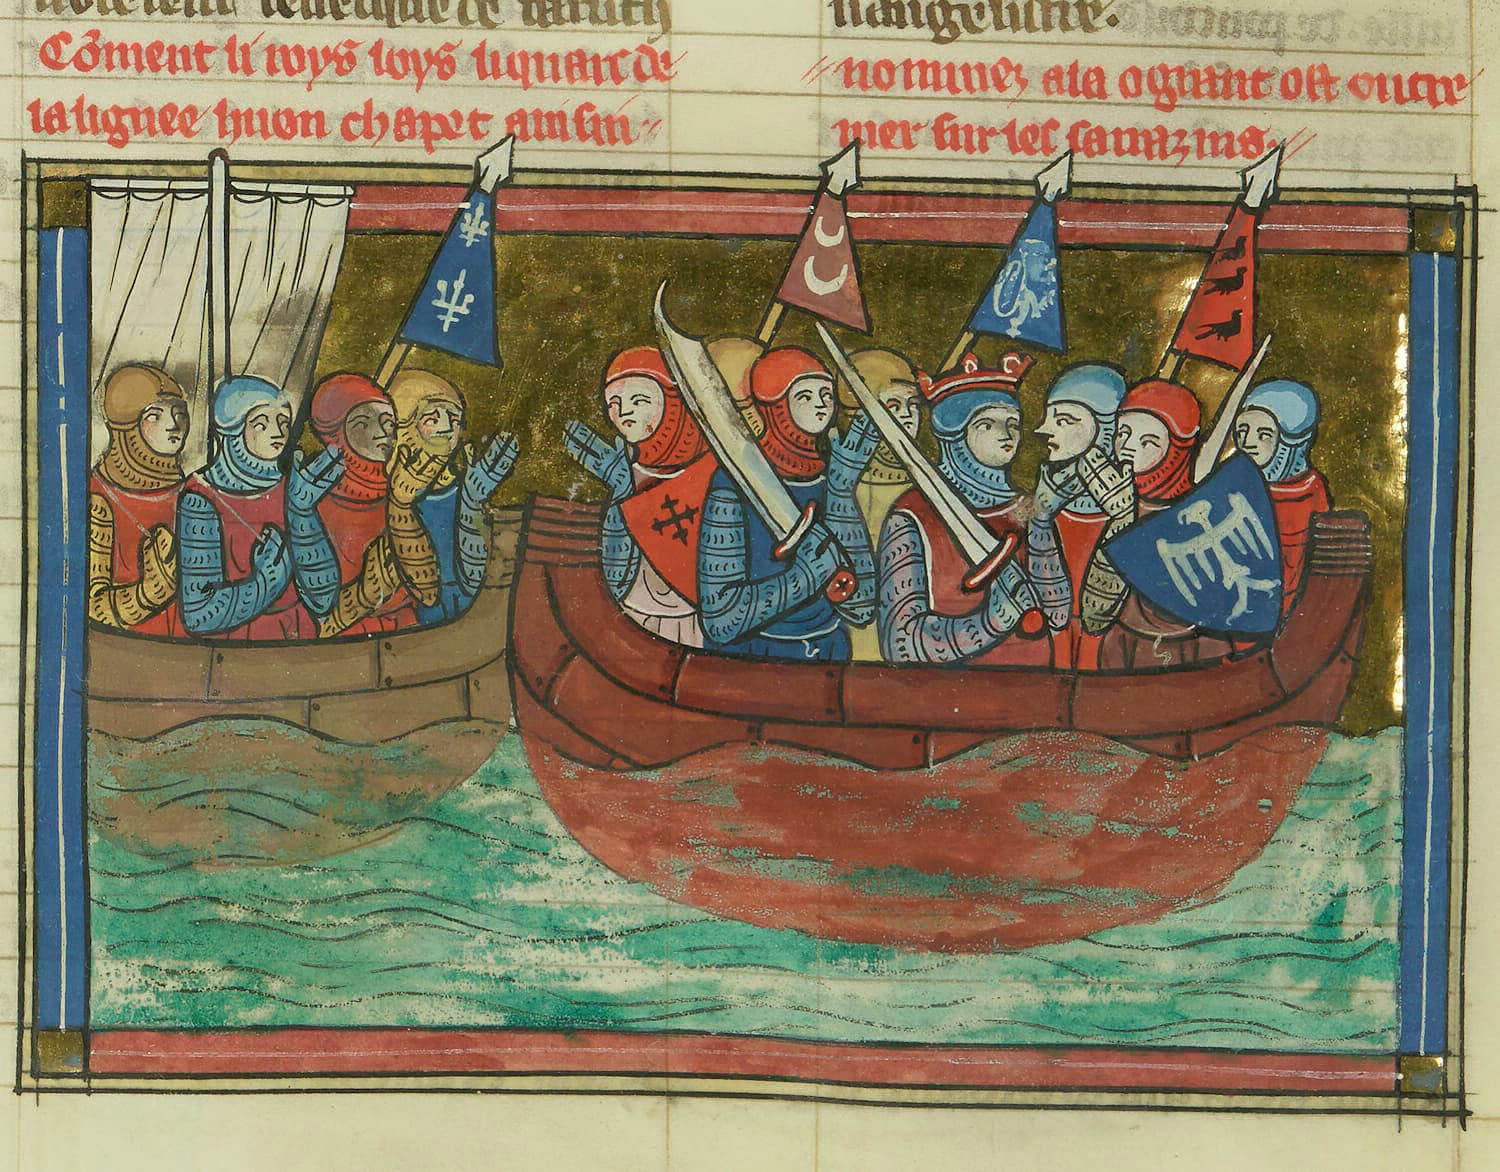 Cōment li roys loys li quars de
la lignee huon chapet ainsin
nommez ala o grant ost outre
mer sur les sarrazins.